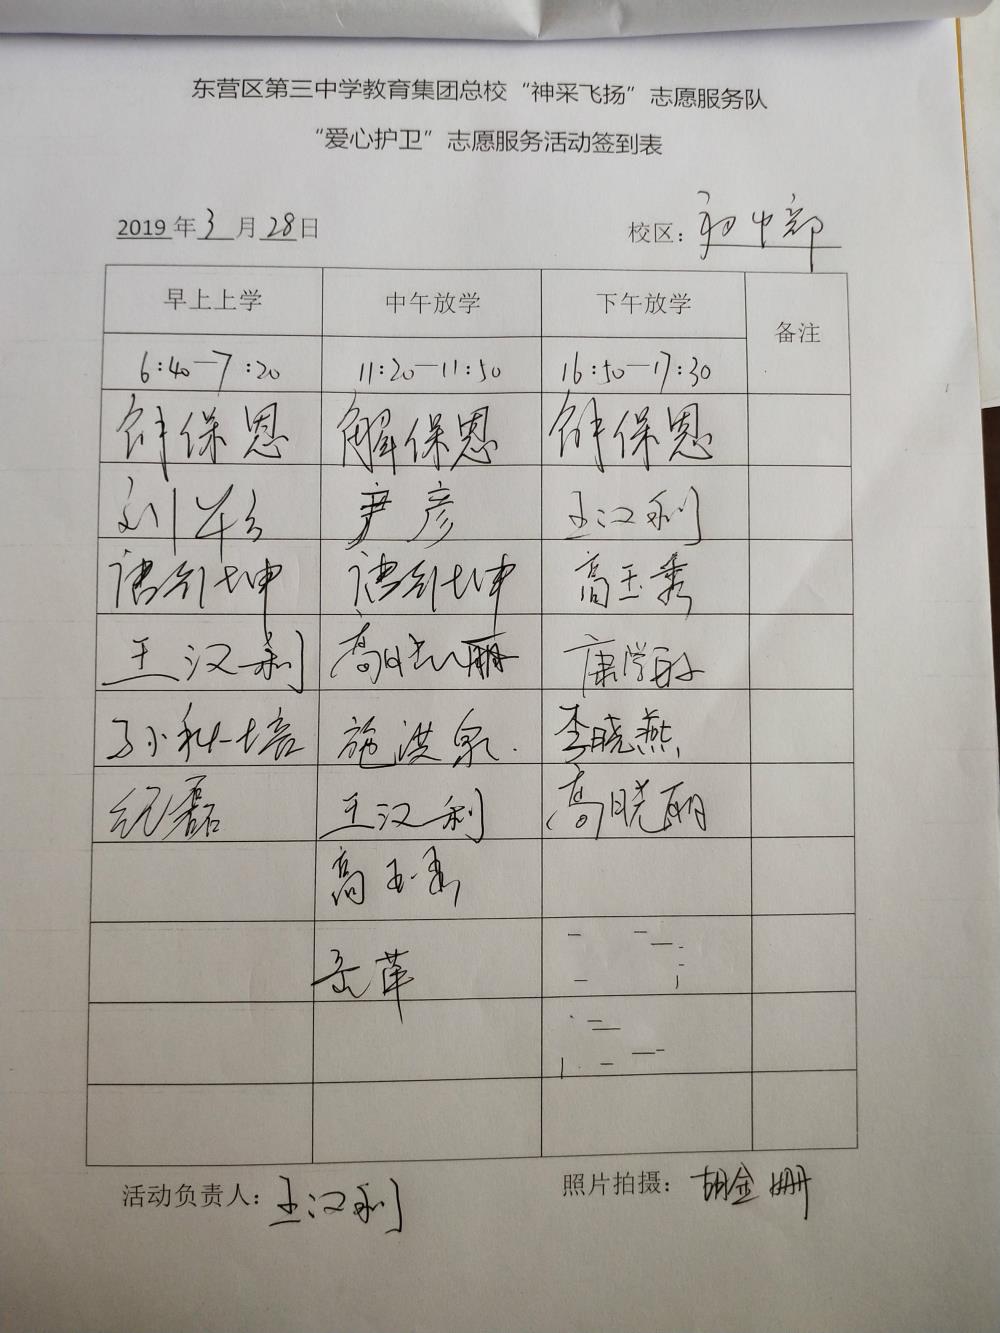 东营区第三中学教育集团总校“神采飞扬”志愿服务队
“爱心护卫”志愿服务活动签到表
2019年3月28日 校区：初中部
早上上学 中午放学 下午放学 备注
6:40—7:20 11:20—11:50 16:50—17:30
解保恩 解保恩 解保恩
刘 尹彦 王汉利
唐 唐 高玉秀
王汉利 高晓丽 康学
孙秋培 施洪泉 李晓燕
纪磊 王汉利 高晓丽
高玉秀
岳苹
活动负责人：王汉利 照片拍摄：胡金珊